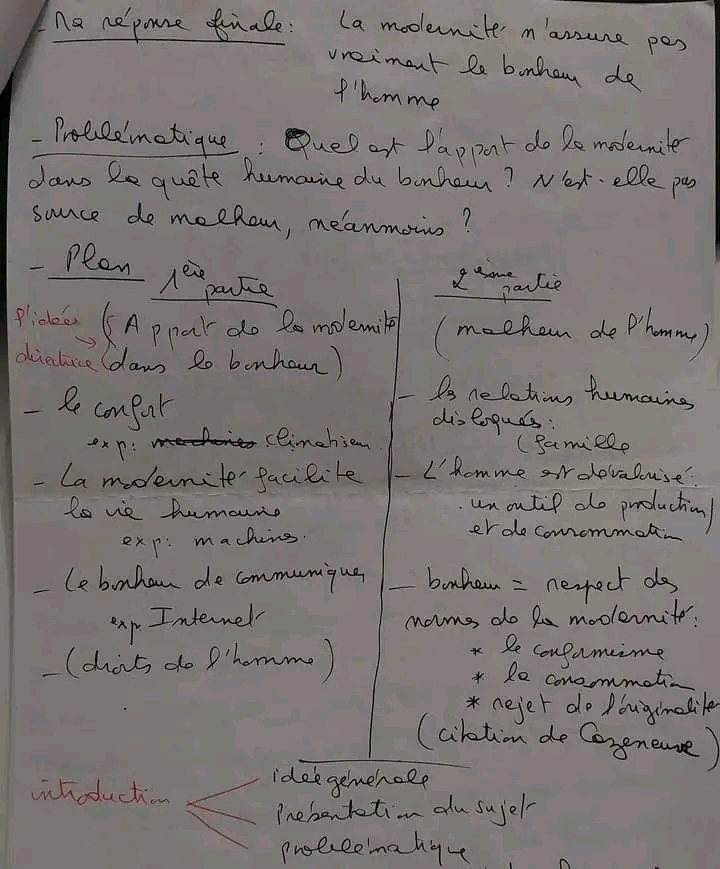 - Ma réponse finale : La modernité n'assure pas
vraiment le bonheur de
l'homme
- Problématique : Quel est l'apport de la modernité
dans la quête humaine du bonheur ? N'est-elle pas
source de malheur, néanmoins ?
- Plan
1ère partie
l'idée directrice
(Apport de la modernité
dans le bonheur)
- le confort
exp: machines climatiseur
- La modernité facilite
la vie humaine
exp: machines.
- Le bonheur de communiquer
exp. Internet
- (droits de l'homme)
2ème partie
(malheur de l'homme)
- les relations humaines
disloqués :
(famille
- L'homme est dévalorisé
. un outil de production
et de consommation
- bonheur = respect des
normes de la modernité :
* le conformisme
* la consommation
* rejet de l'originalité
(citation de Cazeneuve)
introduction
idée générale
présentation du sujet
problématique